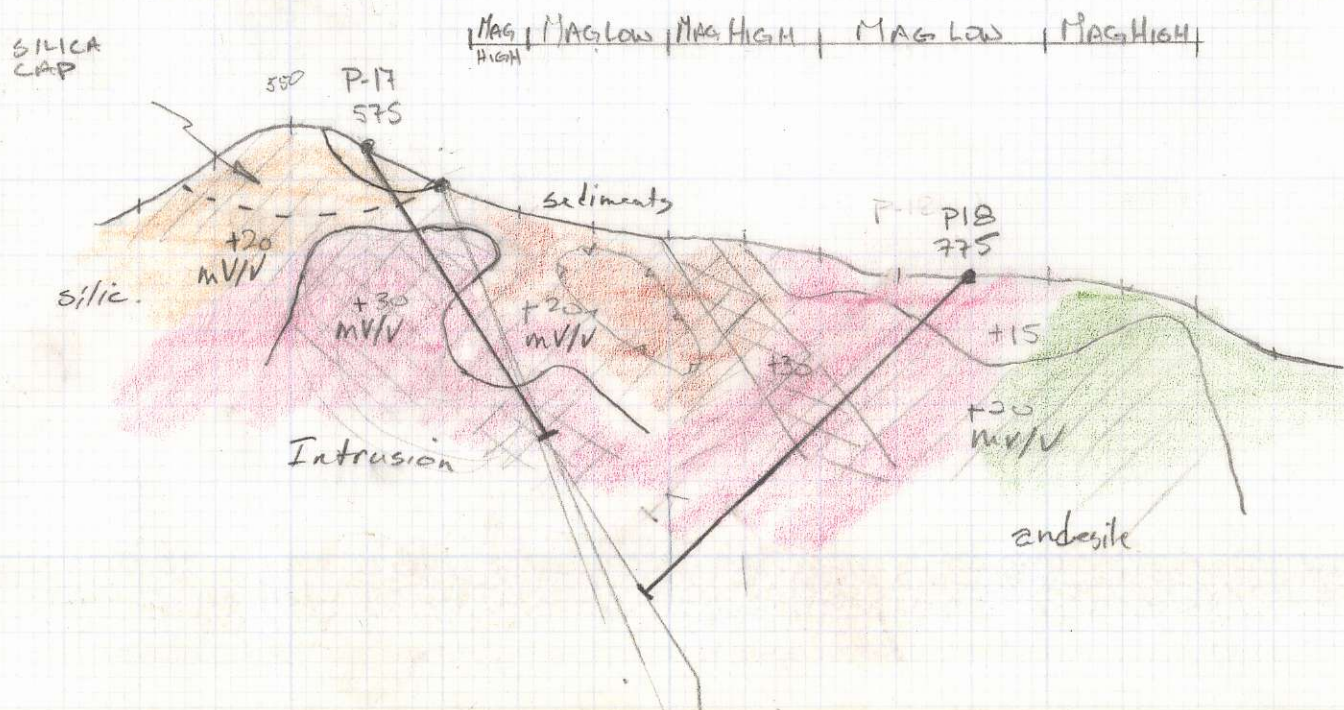 SILICA
CAP
MAG
HIGH
MAG LOW
MAG HIGH
MAG LOW
MAG HIGH
550
P-17
575
sediments
P18
775
+20
mV/V
silic.
+30
mV/V
+20
mV/V
+30
+15
mV/V
Intrusion
andesite